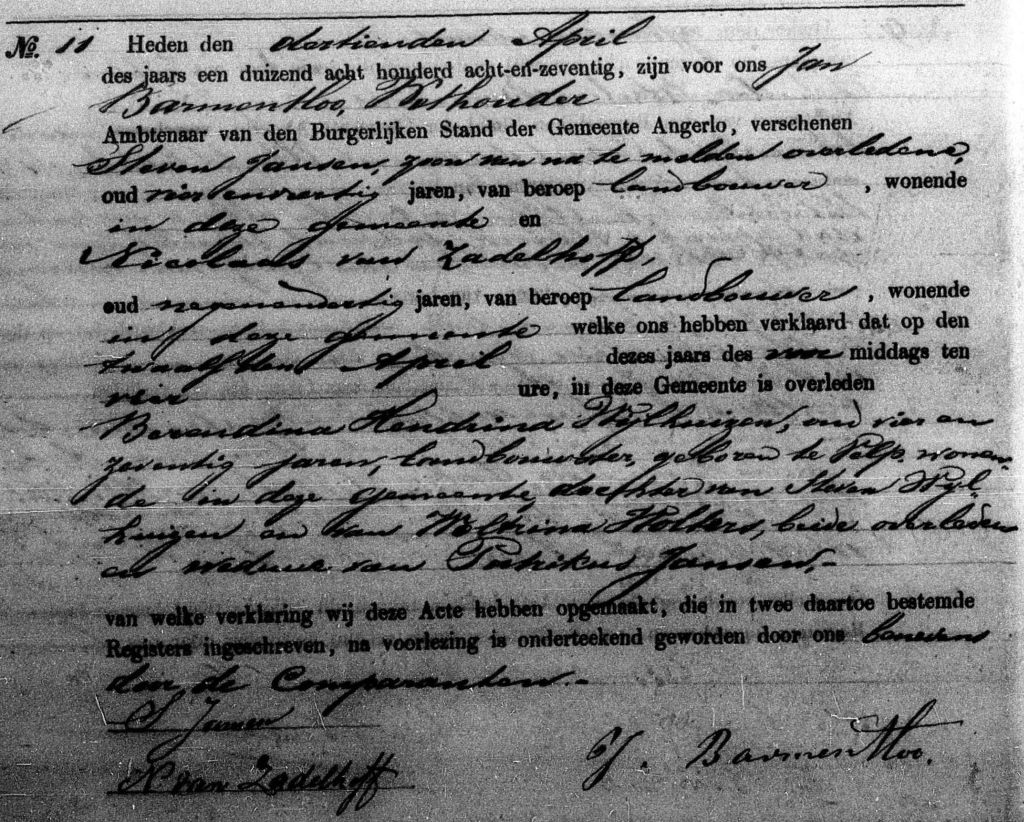 No. 11 Heden den dertienden April
des jaars een duizend acht honderd acht-en-zeventig, zijn voor ons Jan
Barmentloo, Wethouder
Ambtenaar van den Burgerlijken Stand der Gemeente Angerlo, verschenen
Steven Jansen, zoon van na te melden overledene,
oud vierendertig jaren, van beroep landbouwer, wonende
in deze gemeente en
Nicolaas van Zadelhoff,
oud negenendertig jaren, van beroep landbouwer, wonende
in deze gemeente welke ons hebben verklaard dat op den
twaalfden April dezes jaars des voor middags ten
vier ure, in deze Gemeente is overleden
Berendina Hendrina Wylhuizen, oud vier en
zeventig jaren, landbouwster, geboren te Velp, wonen-
de in deze gemeente, dochter van Steven Wyl-
huizen en van Wolters, beide overleden
en weduwe van Jansen,-
van welke verklaring wij deze Acte hebben opgemaakt, die in twee daartoe bestemde
Registers ingeschreven, na voorlezing is onderteekend geworden door ons benevens
door de Comparanten.-
S Jansen
N van Zadelhoff
J. Barmentloo.